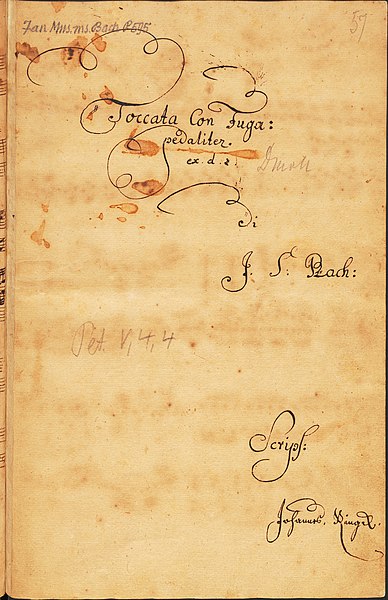 Fan Mus. ms. Bach P 595
57
Toccata Con Fuga:
pedaliter.
ex. d. #.
Dmoll
di
J. S. Bach:
Pet. V, 4, 4
Scrips:
Johannes, Ringk.